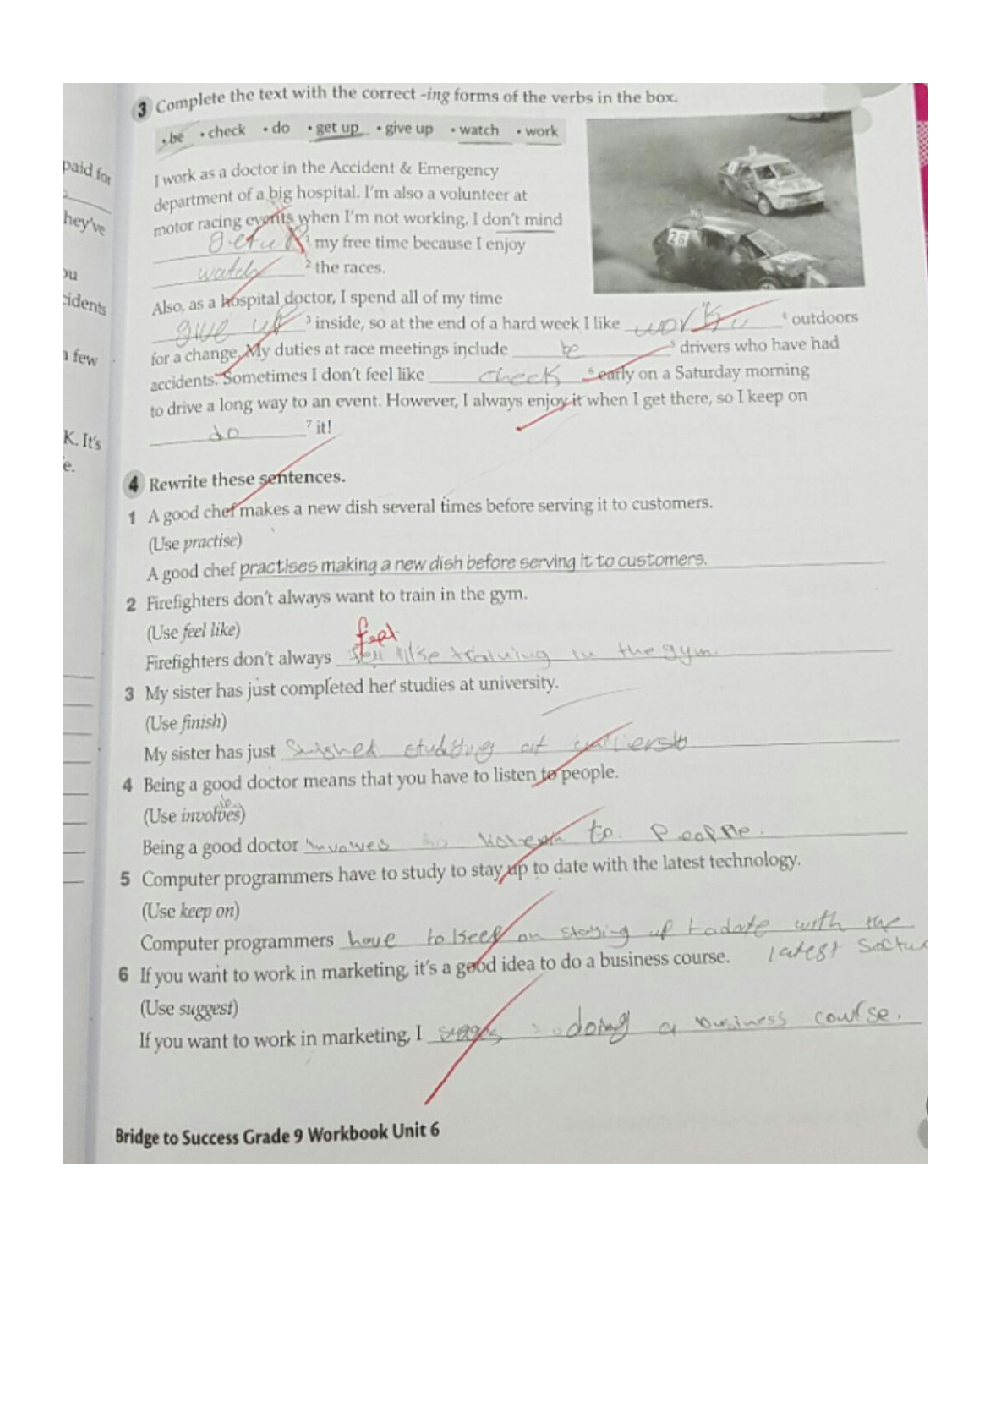 paid for
hey've
ou
cidents
a few
K. It's
e.
3 Complete the text with the correct -ing forms of the verbs in the box.
• be • check • do • get up • give up • watch • work
I work as a doctor in the Accident & Emergency
department of a big hospital. I'm also a volunteer at
motor racing events when I'm not working. I don't mind
1 my free time because I enjoy
watch 2 the races.
Also, as a hospital doctor, I spend all of my time
give up 3 inside, so at the end of a hard week I like 4 outdoors
for a change. My duties at race meetings include be 5 drivers who have had
accidents. Sometimes I don't feel like check 6 early on a Saturday morning
to drive a long way to an event. However, I always enjoy it when I get there, so I keep on
do 7 it!
26
4 Rewrite these sentences.
1 A good chef makes a new dish several times before serving it to customers.
(Use practise)
A good chef practises making a new dish before serving it to customers.
2 Firefighters don't always want to train in the gym.
(Use feel like)
feel
Firefighters don't always like training in the gym.
3 My sister has just completed her studies at university.
(Use finish)
My sister has just studying at
4 Being a good doctor means that you have to listen to people.
(Use involves)
Being a good doctor to people.
5 Computer programmers have to study to stay up to date with the latest technology.
(Use keep on)
Computer programmers have to keep on staying up to date with the
latest
6 If you want to work in marketing, it's a good idea to do a business course.
(Use suggest)
If you want to work in marketing, I doing a business course.
Bridge to Success Grade 9 Workbook Unit 6